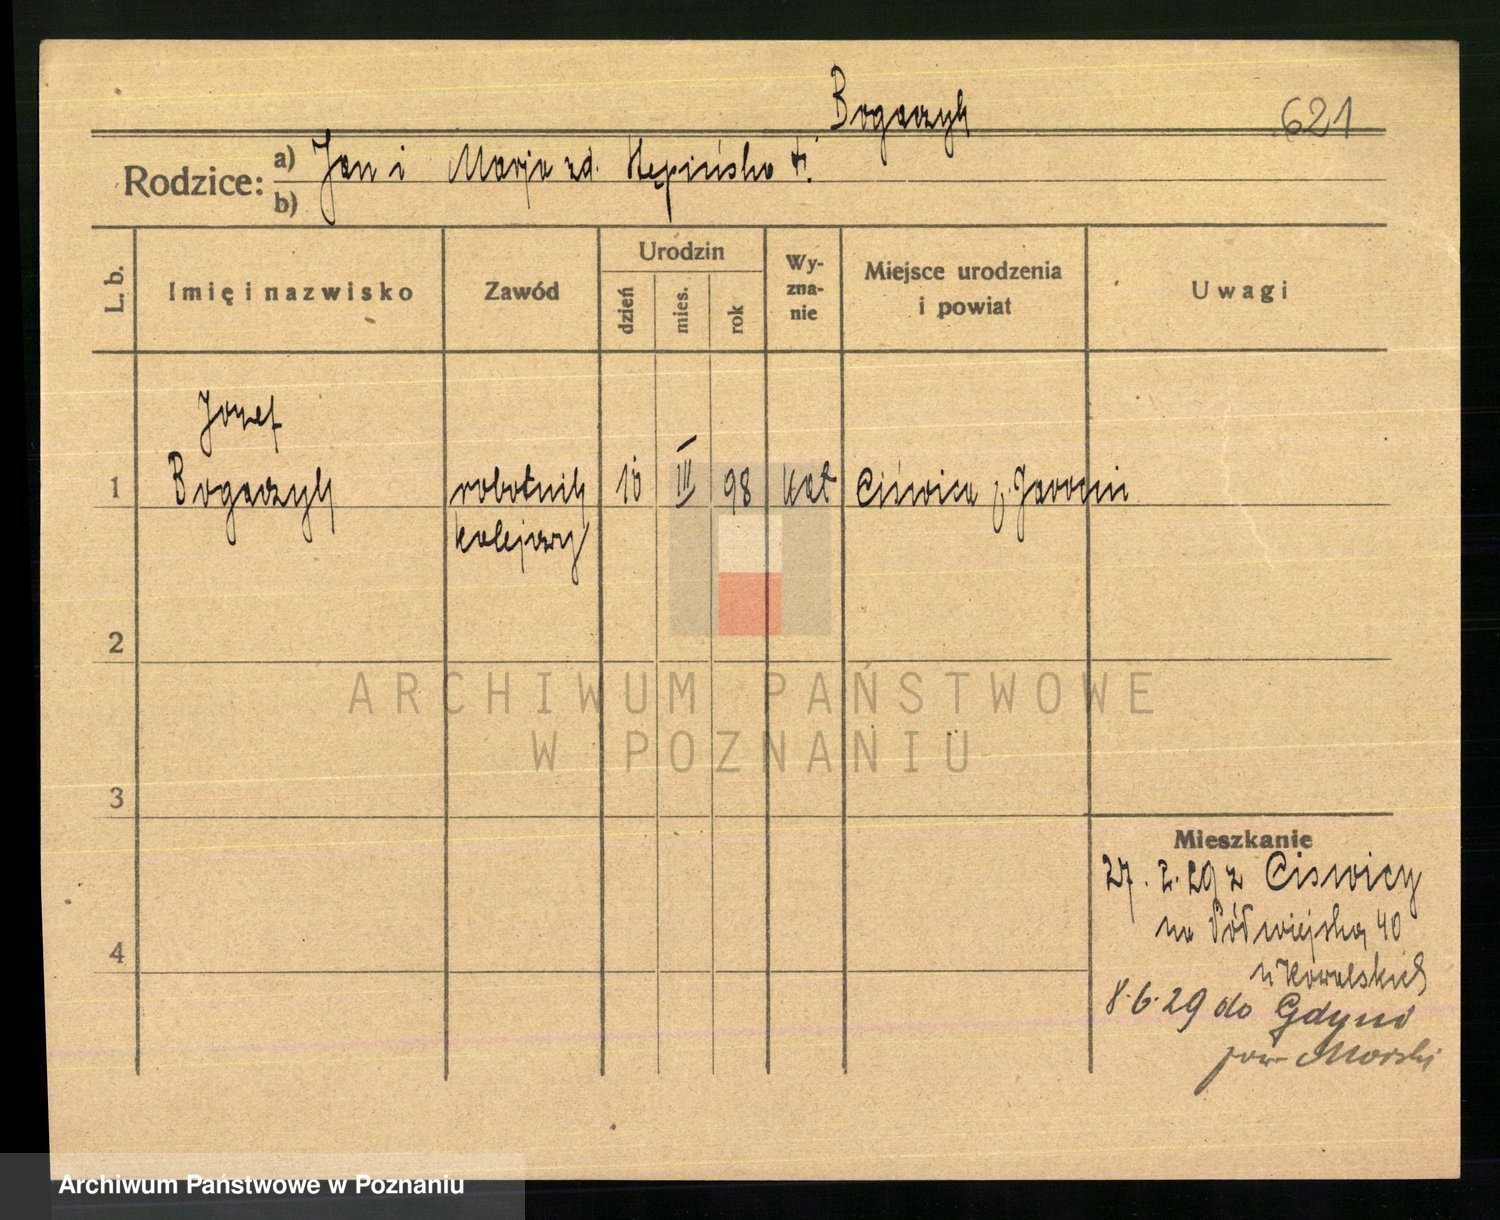 Bogaczyk
621
Rodzice:
a) Jan i Marja zd. Stępińska †.
b)
L. b.
Imię i nazwisko
Zawód
Urodzin
dzień
mies.
rok
Wy-
zna-
nie
Miejsce urodzenia
i powiat
Uwagi
Jozef
1 Bogaczyk robotnik III 98 kat Ciświca p. Jarocin
kolejowy
2
ARCHIWUM PAŃSTWOWE
W POZNANIU
3
4
Mieszkanie
27. 2. 29 z Ciswicy
na Półwiejską 40
u Kowalskich
8.6.29 do Gdyni
pow Morski
Archiwum Państwowe w Poznaniu